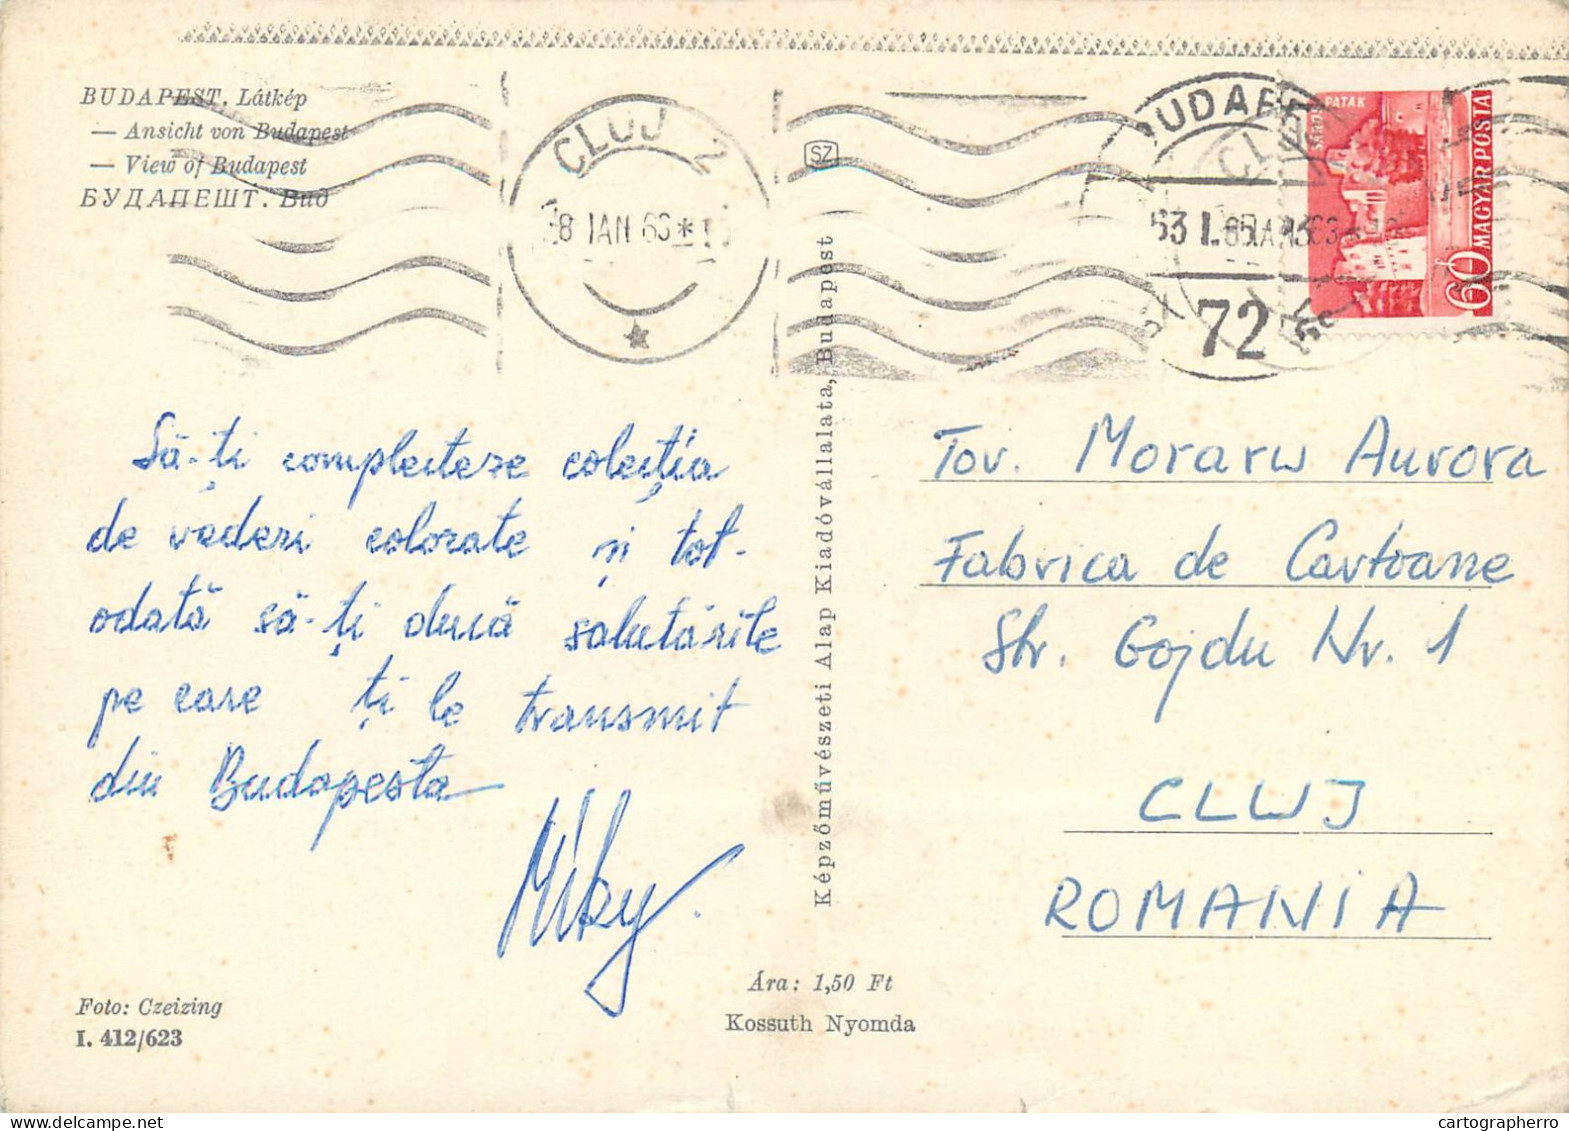 BUDAPEST. Látkép
— Ansicht von Budapest
— View of Budapest
БУДАПЕШТ. Вид
CLUJ 2
8 IAN 63 *
SZ
BUDAPEST
63 I.
72
CLUJ
SÁROSPATAK
MAGYAR POSTA
60
Să-ți completeze colecția
de vederi colorate și tot-
odată să-ți ducă salutările
pe care ți le transmit
din Budapesta
Miky
Képzőművészeti Alap Kiadóvállalata, Budapest
Tov. Moraru Aurora
Fabrica de Cartoane
Str. Gojdu Nr. 1
CLUJ
ROMANIA
Foto: Czeizing
I. 412/623
Ára: 1,50 Ft
Kossuth Nyomda
cartographerro